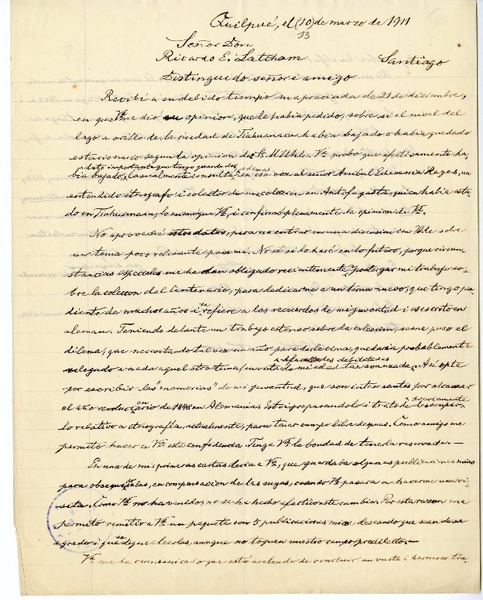 Quilpué, el (10) de marzo de 1911
13
Señor Don
Ricardo E. Latcham Santiago
Distinguido señor i amigo
Recibí a su debido tiempo su apreciada de 21 de diciembre,
en que Vd. me dió su opinion, que le habia pedido, sobre, si el nivel del
lago a orillo de la ciudad de Tiahuanaco habia bajado o habia quedado
estacionario segun la opinion de Dr. M. Uhle. Vd. probó que efectivamente ha-
bia bajado, dato importante
Casualmente consulté en esos dias al señor Anibal Echeverria Reyes, un
entendido etnógrafo i colector de una coleccion en Antofagasta, quien habia esta-
do en Tiahuanaco, lo mismo que Vd., i confirmó plenamente la opinion de Vd.
No aproveché estos datos, para no entrar en una discusion con Uhle sobre
un tema poco relevante para mi. No sé si lo haré en lo futuro, porque circun-
stancias especiales me han obligado recientemente postergar mi trabajo so-
bre la coleccion del Centenario, para dedicarme a un tema nuevo, que tengo pen-
diente de muchos años i se refiere a los recuerdos de mi juventud i es escrito en
aleman. Teniendo delante un trabajo estenso sobre la coleccion, se me puso el
dilema, que necesitando tal vez un año para darle cima, quedaria probablemente
relegado a nada aquel otro tema en vista de mi edad tan avanzada. Así opté
por escribir las "memorias" de mi juventud, que son interesantes por alcanzar
el año revolucionario de 1848 en Alemania. Estoi preparandolo i trato de desocupar
previamente
lo relativo a etnografia, actualmente, para tener campo libre despues. Como amigo me
permito hacer a Vd. esta confidencia. Tenga Vd. la bondad de tenerla reservada.—
En una de mis primeras cartas decia a Vd., que guardaba algunas publicaciones mias
para obsequiarselas, en compensacion de las suyas, cuando Vd. pasara a hacerme una vi-
sita. Como Vd. no ha venido, no se ha hecho efectivo este cambio. Por esta razon me
permito remitir a Vd. un paquete con 5 publicaciones mias, deseando que sean de su
agrado i que se digne leerlas, aunque no toquen nuestro campo predilecto.—
Vd. me ha comunicado que está acabando de concluir un vasto i hermoso tra-